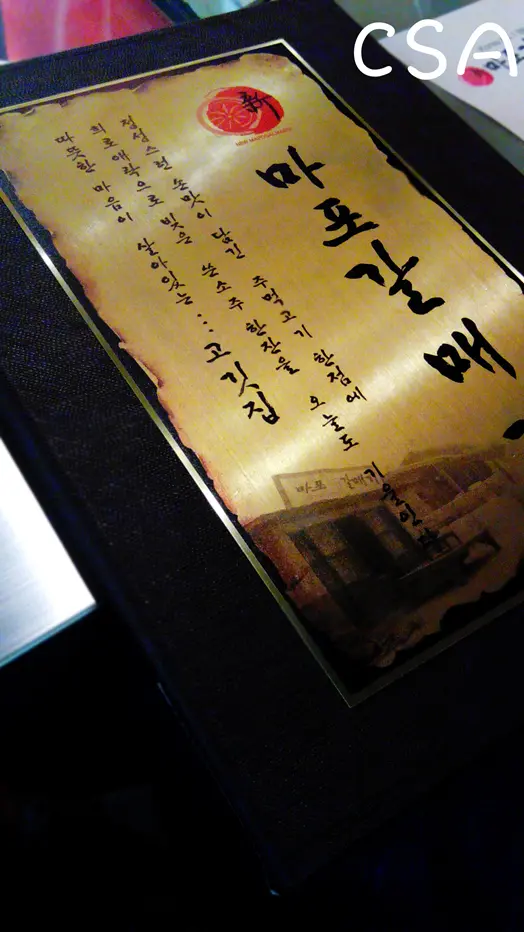 CSA
新
NEW MAPOGALMAEGI
마포갈매
정성스런 손맛이 담긴 주먹고기 한점에
희로애락으로 빚은 쓴소주 한잔을 오늘도 기울인다
따뜻한 마음이 살아있는... 고깃집
마포 갈매기